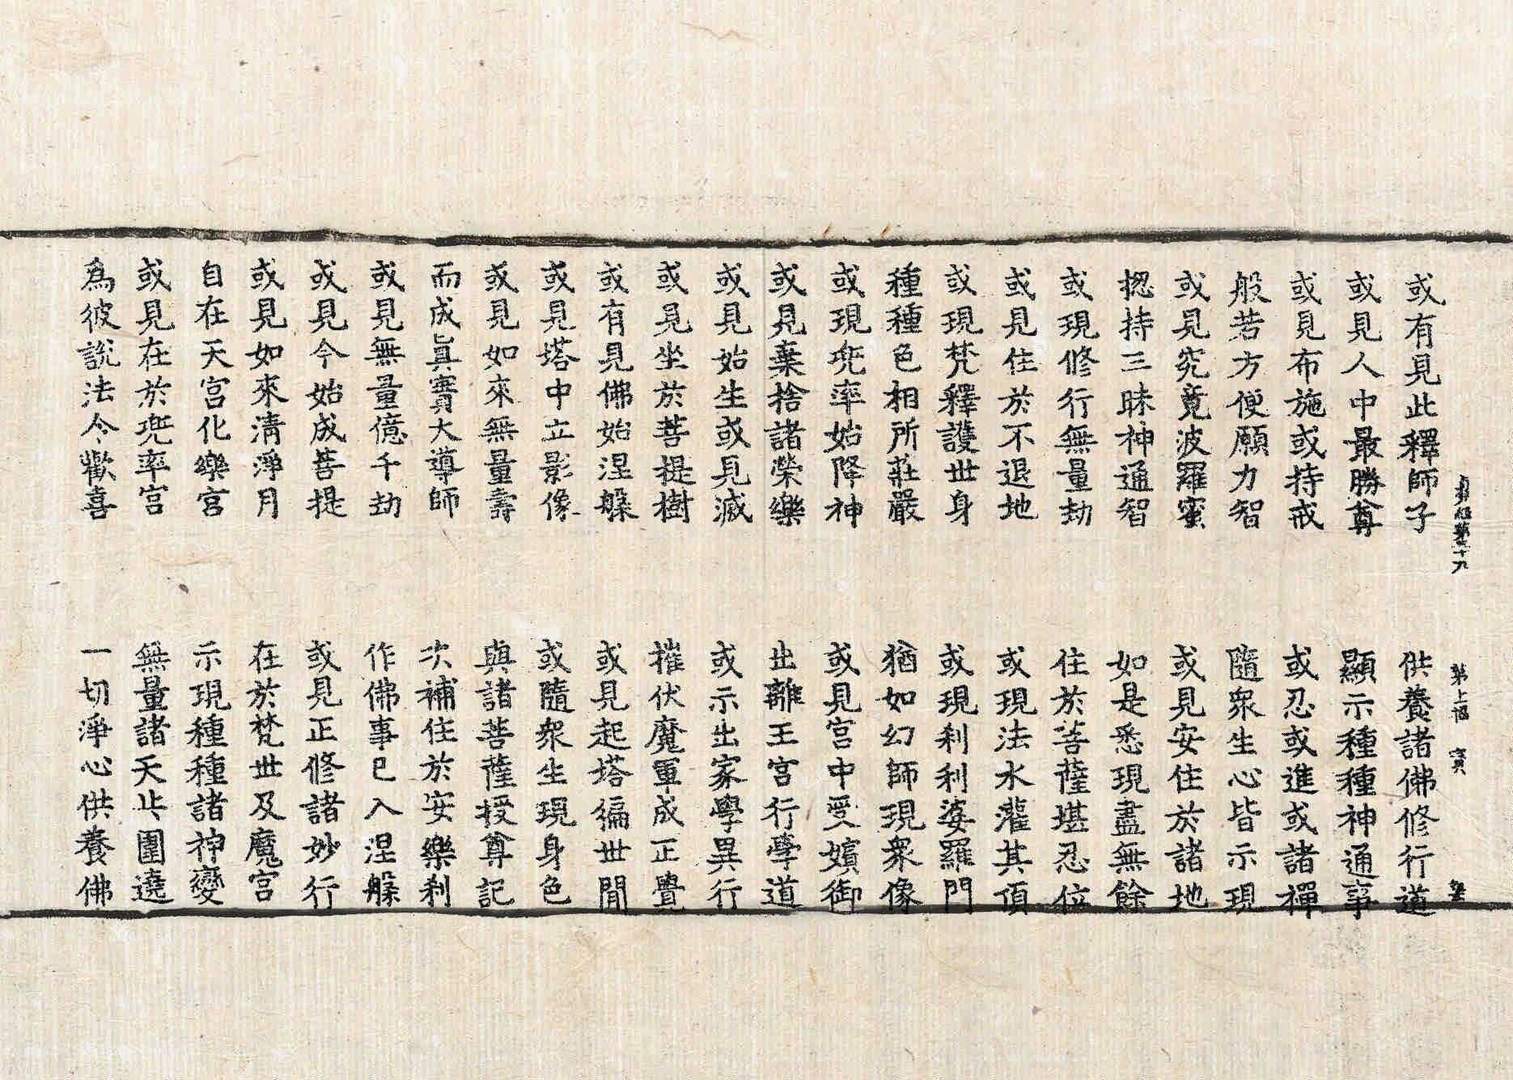 或有見此釋師子 供養諸佛修行道
或見人中最勝尊 顯示種種神通事
或見布施或持戒 或忍或進或諸禪
般若方便願力智 隨衆生心皆示現
或見究竟波羅蜜 或見安住於諸地
揔持三昧神通智 如是悉現盡無餘
或現修行無量劫 住於菩薩堪忍位
或見住於不退地 或現法水灌其頂
或現梵釋護世身 或現利利婆羅門
種種色相所莊嚴 猶如幻師現衆像
或現兜率始降神 或見宮中受嬪御
或見棄捨諸榮樂 出離王宮行學道
或見始生或見滅 或示出家學異行
或見坐於菩提樹 摧伏魔軍成正覺
或有見佛始涅槃 或見起塔徧世間
或見塔中立影像 或隨衆生現身色
或見如來無量壽 與諸菩薩授尊記
而成眞實大導師 次補住於安樂刹
或見無量億千劫 作佛事已入涅槃
或見今始成菩提 或見正修諸妙行
或見如來清淨月 在於梵世及魔宮
自在天宮化樂宮 示現種種諸神變
或見在於兜率宮 無量諸天共圍遶
爲彼說法令歡喜 一切淨心供養佛